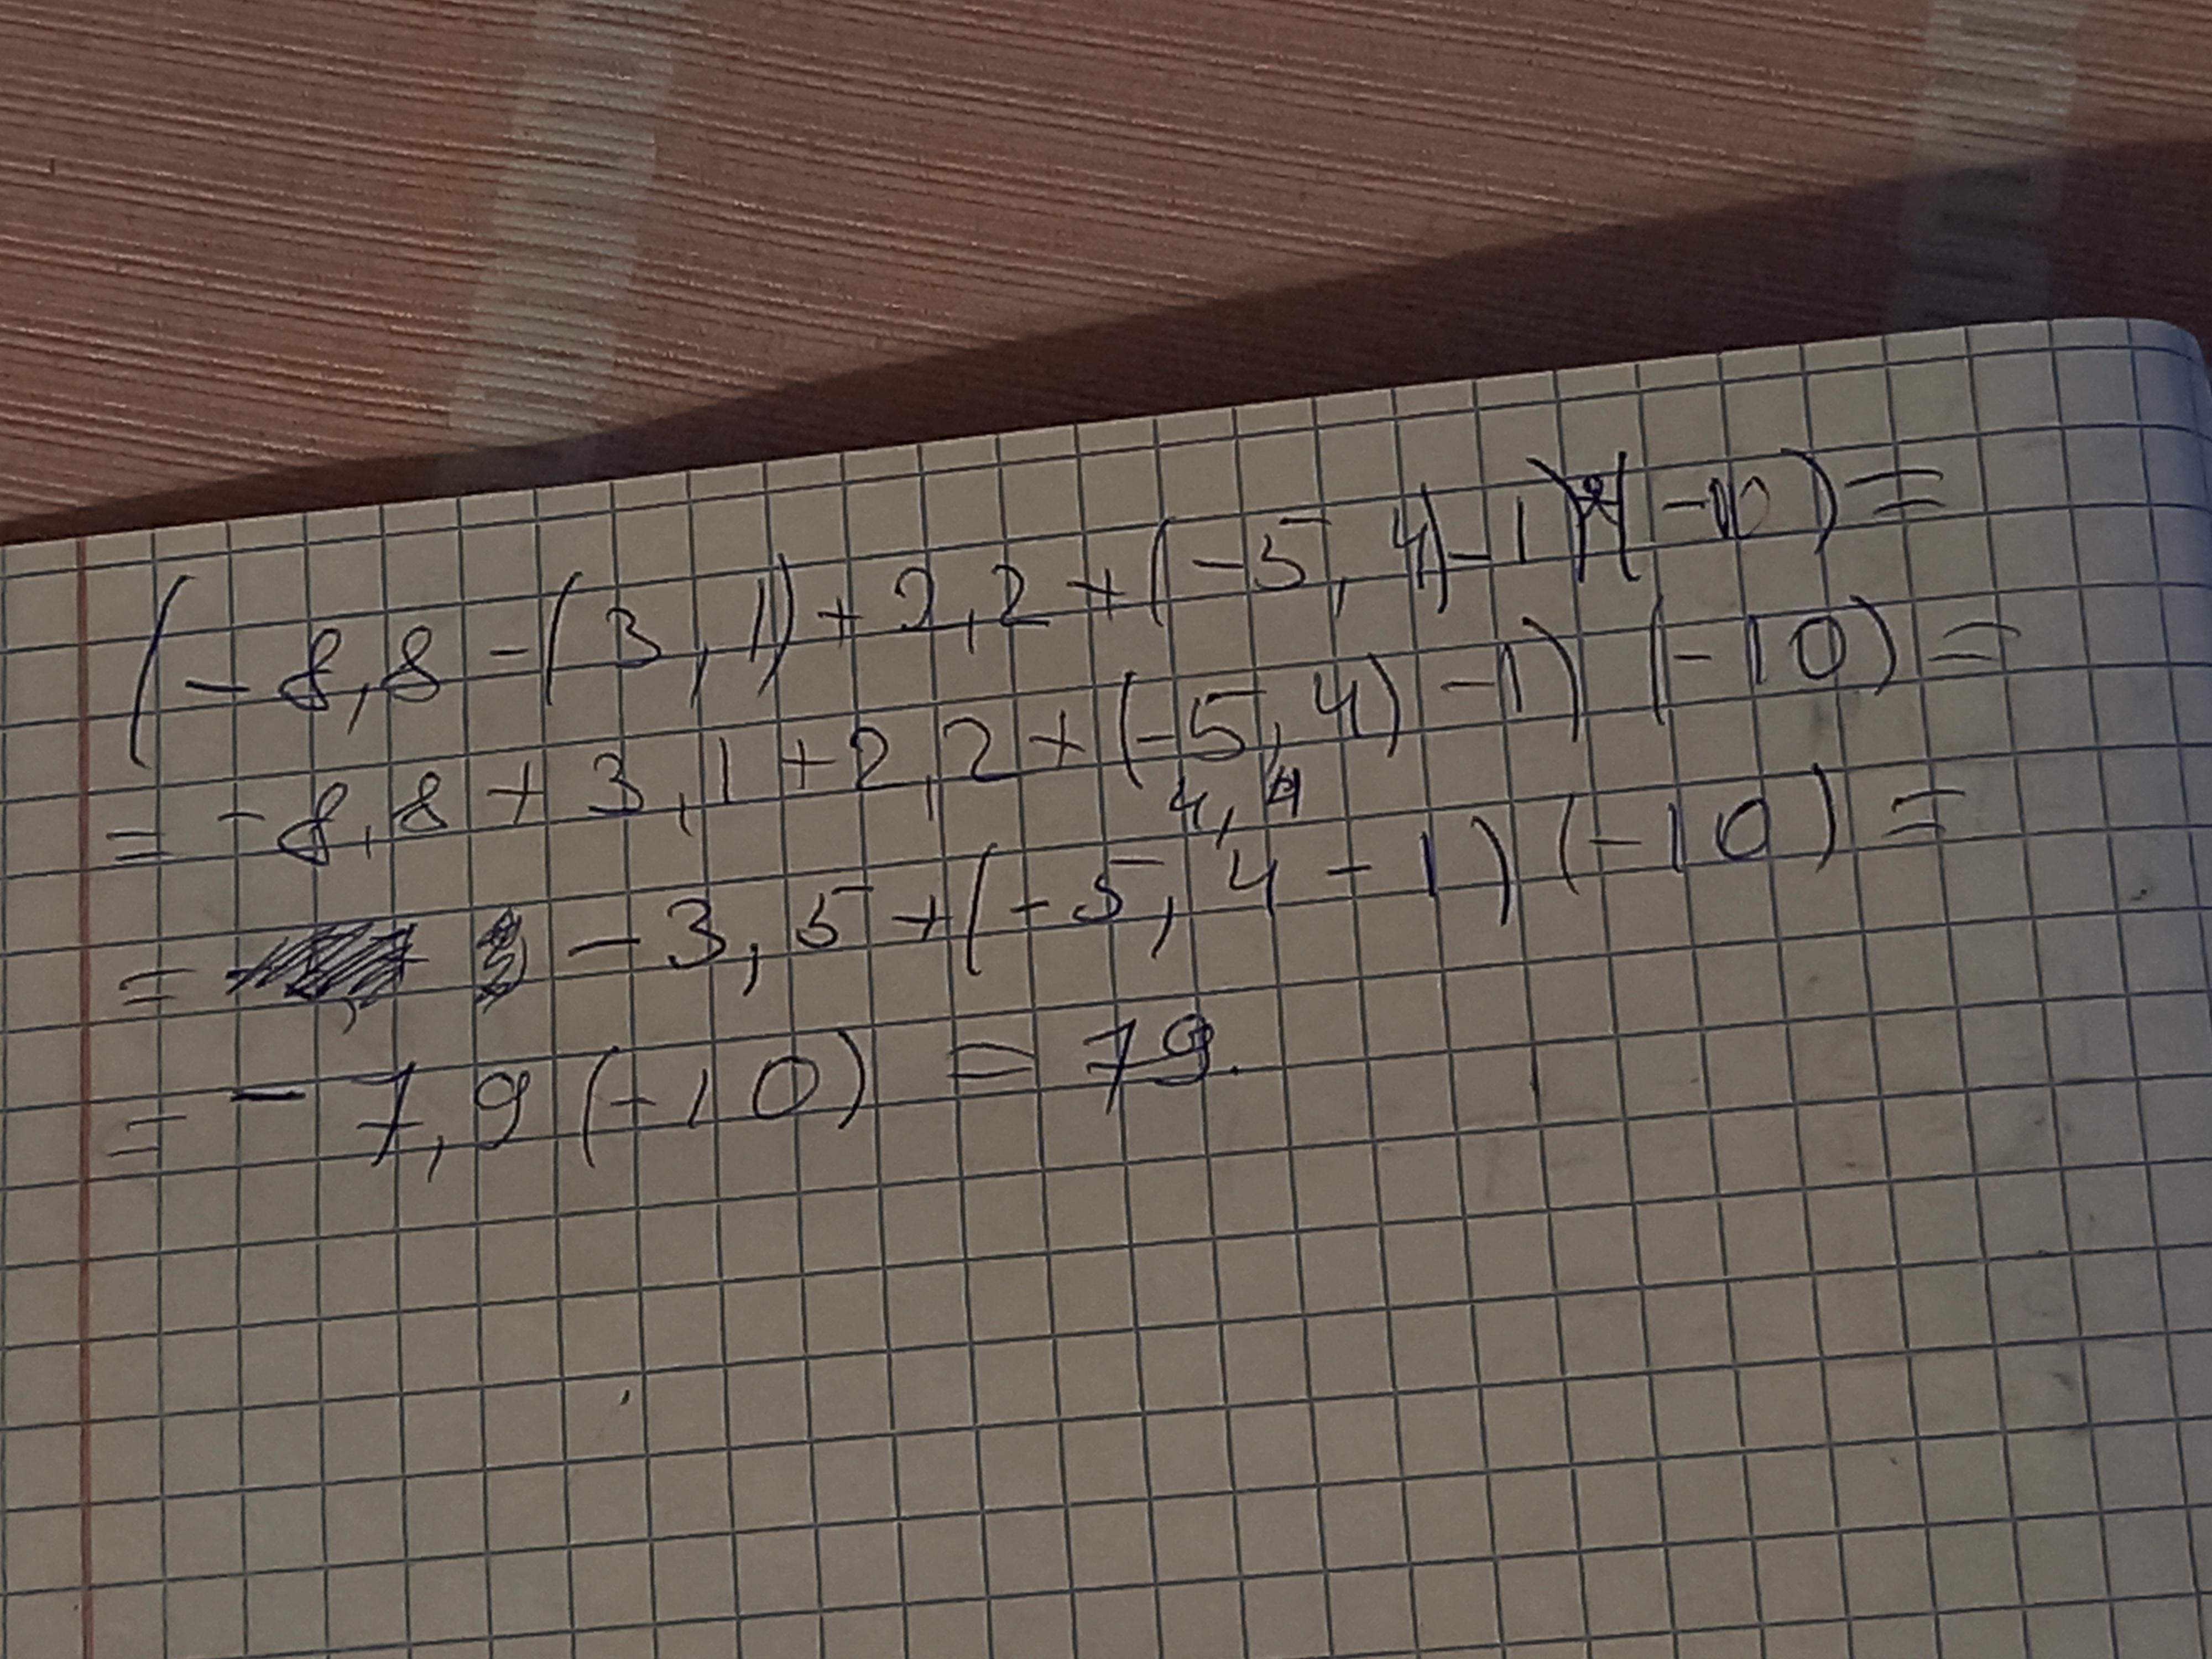 (-8,8-(3,1)+2,2+(-5,4)-1)·(-10)=
=-8,8+3,1+2,2+(-5,4)-1)(-10)=
4,4
=-3,5+(-5,4-1)(-10)=
=-7,9(-10)=79.